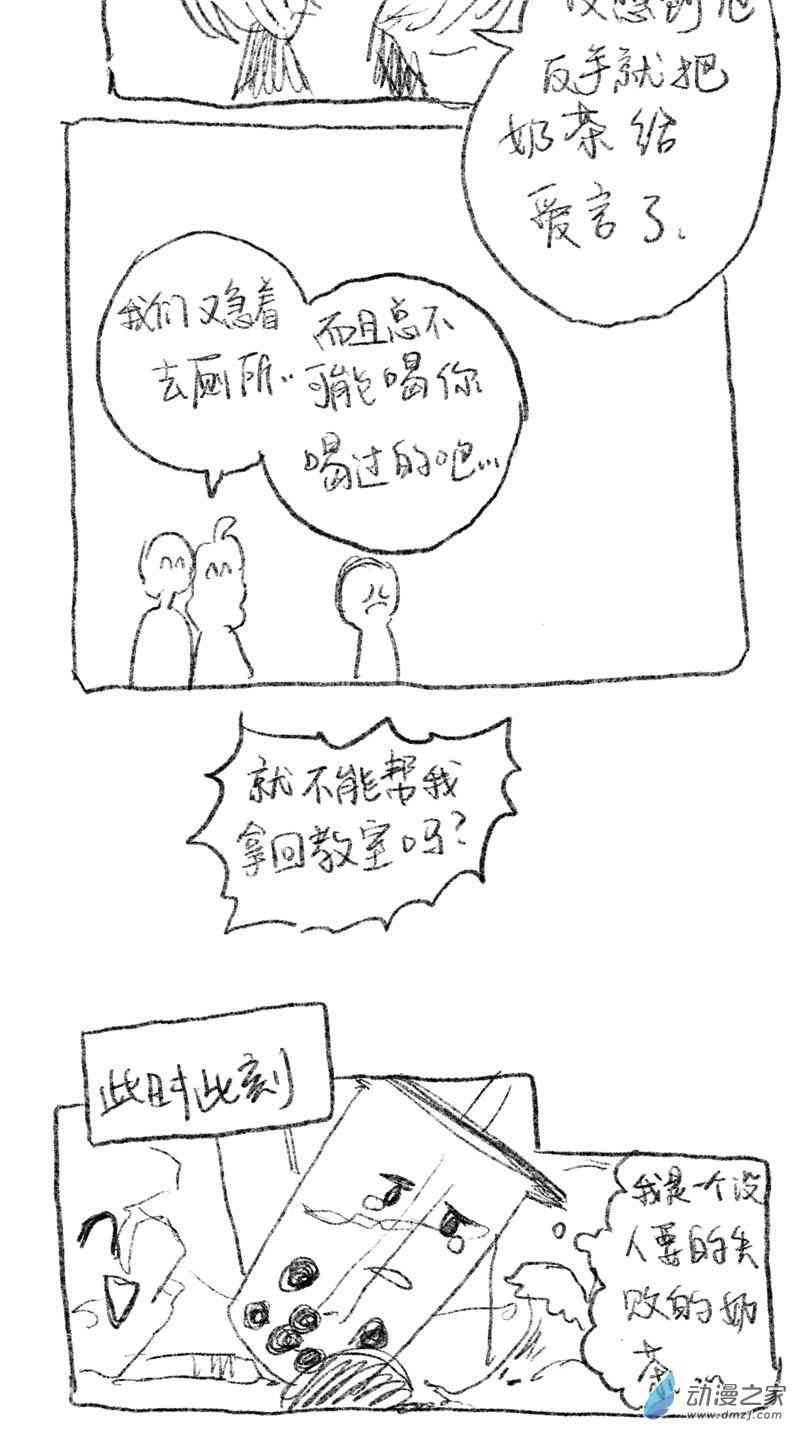 反手就把
奶茶给
爱言了、
我们又急着
去厕所..
而且总不
可能喝你
喝过的吧...
就不能帮我
拿回教室吗？
此时此刻
我是一个没
人要的失
败的奶
茶...
动漫之家
www.dmzj.com